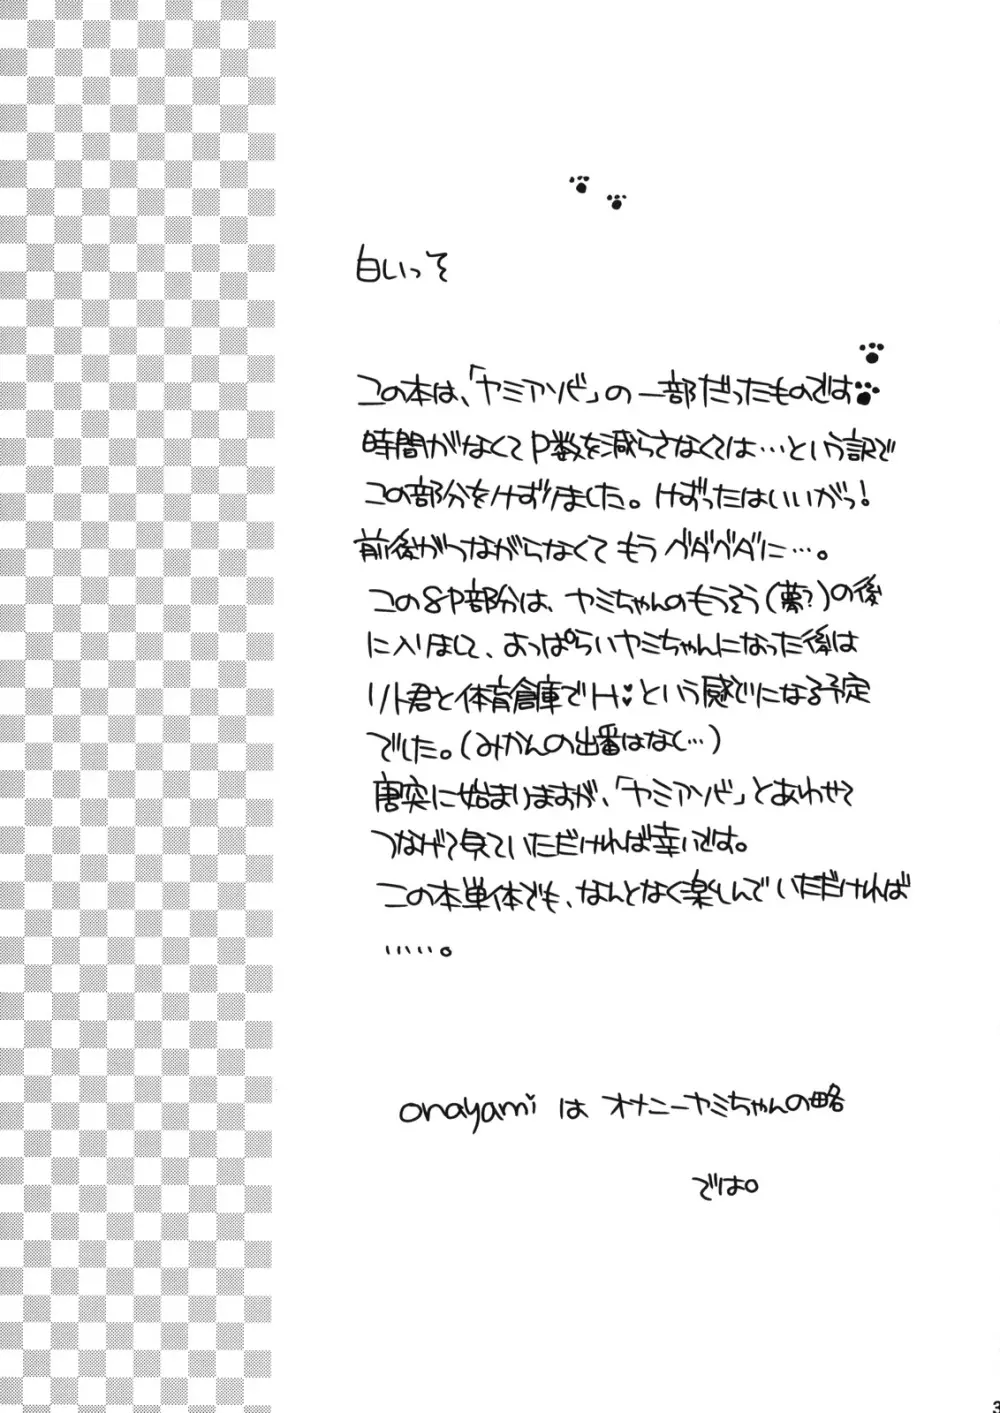 白いって
この本は、「ヤミアソビ」の一部だったものです
時間がなくてP数を減らさなくては…という訳で
この部分をけずりました。けずったはいいがっ!
前後がつながらなくてもうグダグダに…。
この8P部分は、ヤミちゃんのもうそう(夢?)の後
に入りまして、よっぱらいヤミちゃんになった後は
リト君と体育倉庫でH♥という感じになる予定
でした。(みかんの出番はなし…)
唐突に始まりますが、「ヤミアソビ」とあわせて
つなげて見ていただければ幸いです。
この本単体でも、なんとなく楽しんでいただければ
……。
onayamiはオナニーヤミちゃんの略
では。
3